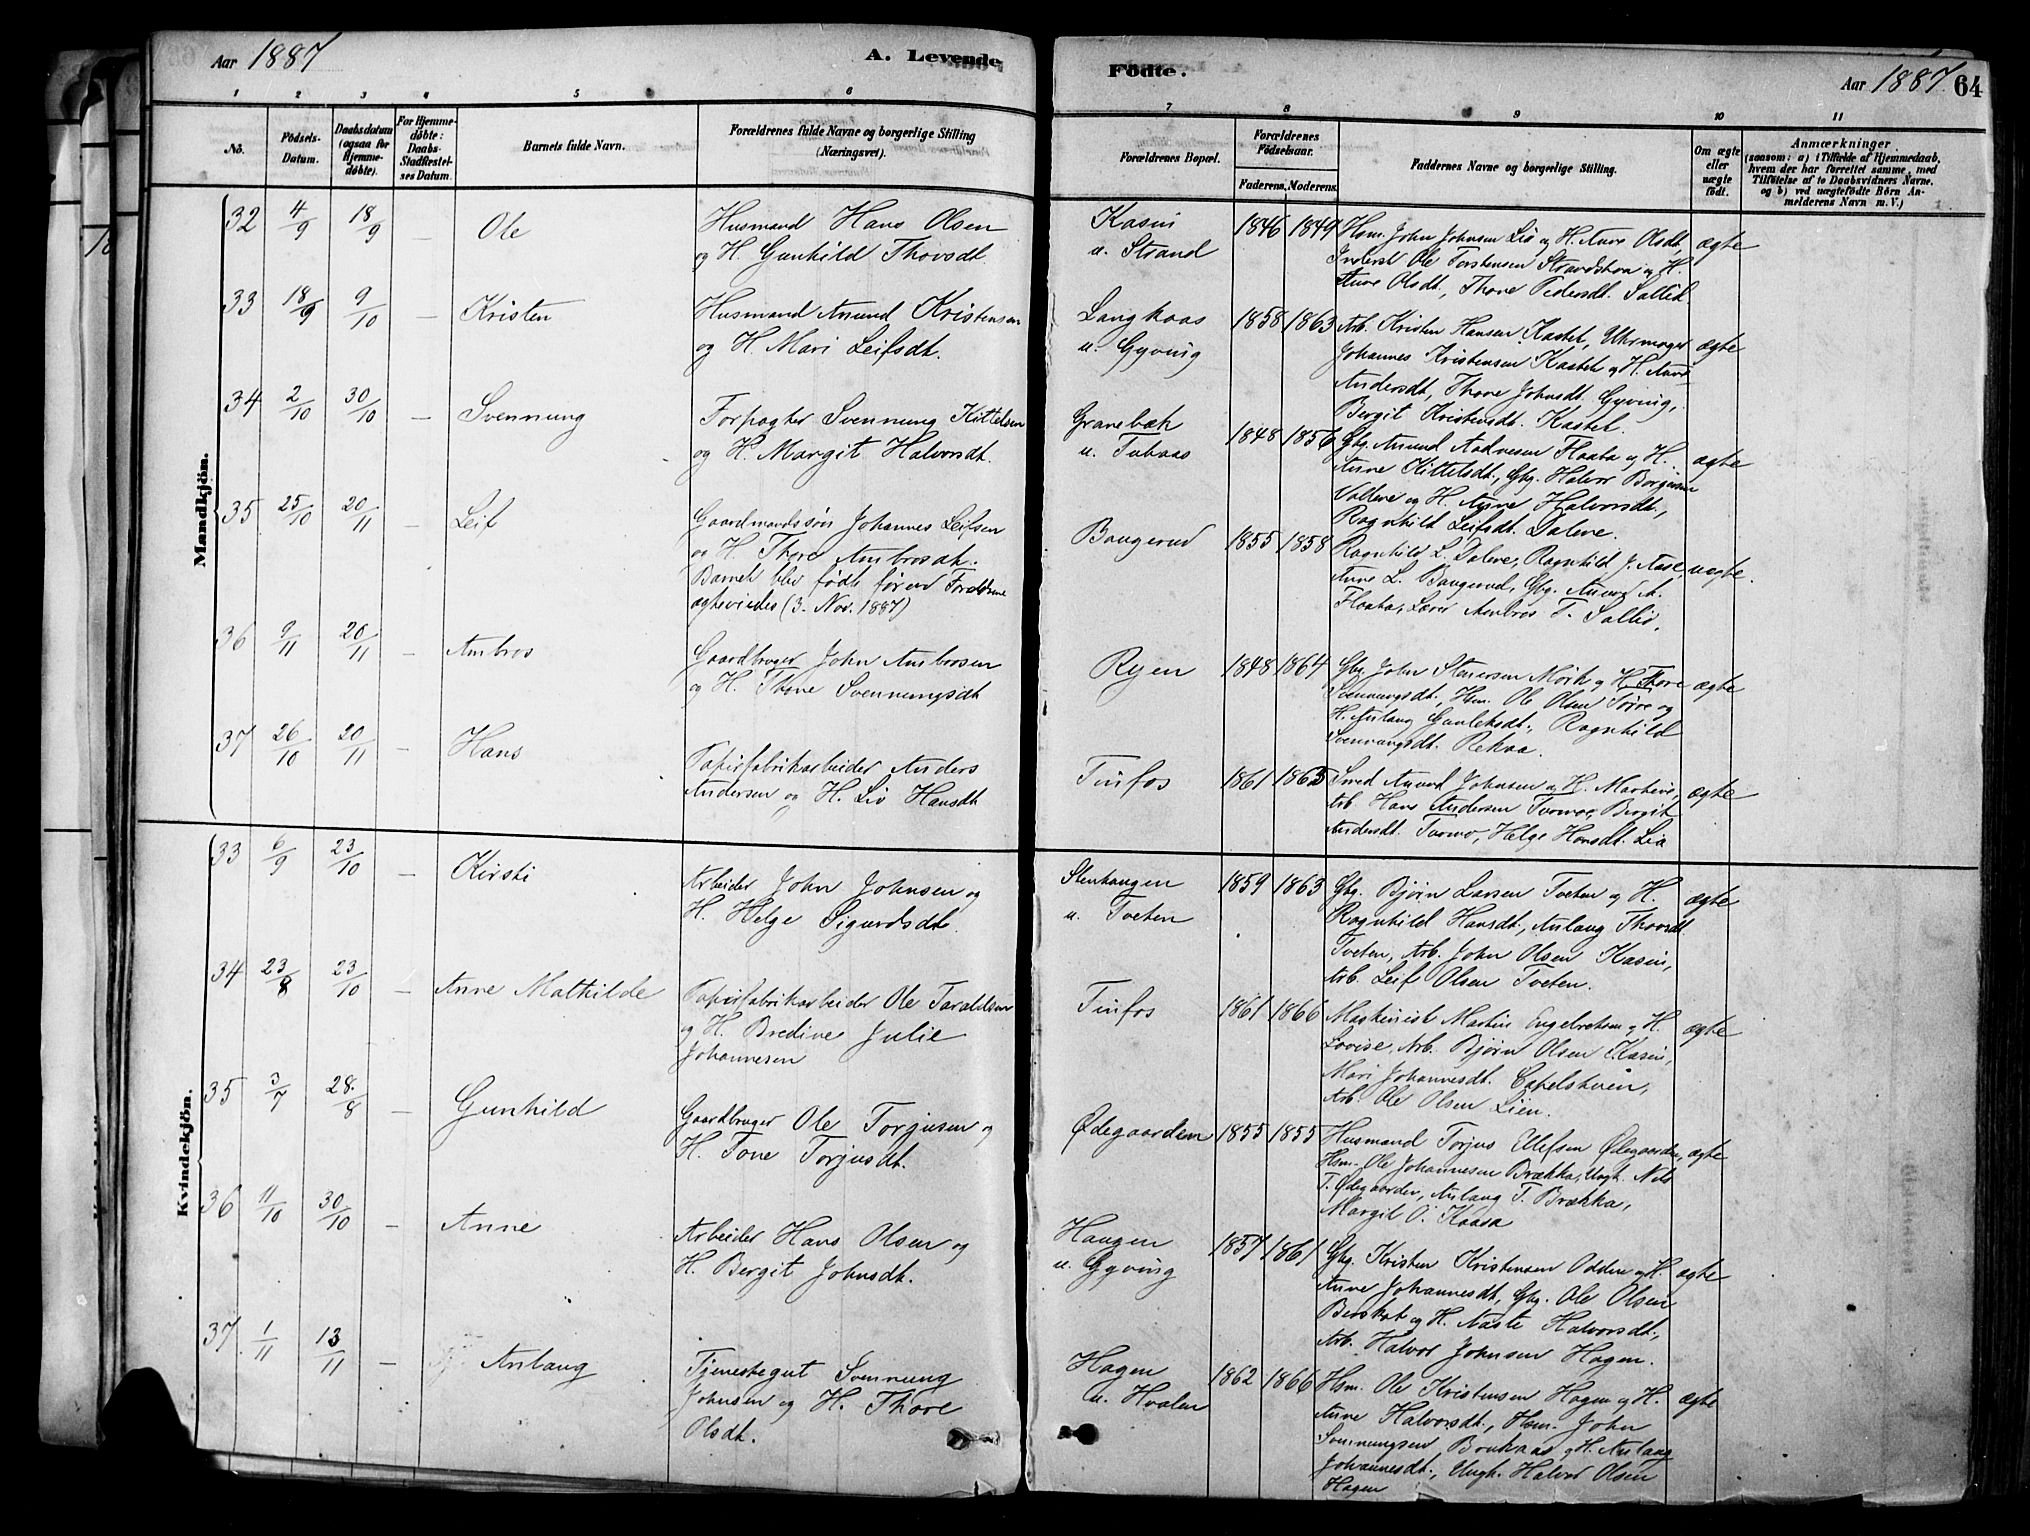 Aar 1887
A. Levende
Fødte.
Aar 1887. 64
1 2 3 4 5 6 7 8 9 10 11
No.
Fødsels-
Datum.
Daabsdatum
(ogsaa for
Hjemme-
døbte).
For Hjemme-
døbte:
Daabs-
Stadfæstel-
ses Datum.
Barnets fulde Navn.
Forældrenes fulde Navne og borgerlige Stilling
(Næringsvei).
Forældrenes Bopæl.
Forældrenes
Fødselsaar.
Faderens. Moderens.
Faddernes Navne og borgerlige Stilling.
Om ægte
eller
uægte
født.
Anmærkninger
(saasom: a) i Tilfælde af Hjemmedaab,
hvem der har forrettet samme, med
Tilføielse af to Daabsvidners Navne,
og b) ved uægtefødte Børn An-
melderens Navn m. V.)
Mandkjön.
32 4/9 18/9 — Ole
Husmand Hans Olsen
og H. Gunhild Thovsdt.
Kasin
u. Strand
1846 1849
Hsm. John Johnsen Lió og H. Anne Olsdt,
Inderst Ole Torstensen Strandstoa og H.
Anne Olsdt., Thone Pedersdt. Sallid
ægte
33 18/9 9/10 — Kristen
Husmand Amund Kristensen
og H. Mari Leifsdt.
Langkaas
u. Gyving
1858 1863
Arb. Kristen Hansen Kastet, Uhrmager
Johannes Kristensen Kastet og H. Anne
Andersdt, Thone Johnsdt. Gyving,
Bergit Kristensdt. Kastet.
ægte
34 2/10 30/10 — Svennung
Forpagter Svennung Kittelsen
og H. Margit Halvorsdt.
Granebæk
u. Tubaas
1848 1856
Gbg. Amund Aadnesen Flaata og H.
Anne Kittelsdt., Gbg. Halvor Borgersen
Vallene og H. Anne Halvorsdt.,
Ragnhild Leifsdt. Dalene.
ægte
35 25/10 20/11 — Leif
Gaardmandssøn Johannes Leifsen
og H. Thone Ambrosdt.
Barnet blev født førend Forældrene
ægteviedes (3. Nov. 1887)
Baugerud
1855 1858
Ragnhild L. Dalene, Ragnhild J. Aase,
Anne L. Baugerud, Gbg. Amund A.
Flaata, Lærer Ambros T. Sallid.
uægte.
36 9/11 20/11 — Ambros
Gaardbruger John Ambrosen
og H. Thone Svennungsdt
Ryen
1848 1864
Gbg. John Stenersen Mørk og H. Thore
Svennungsdt., Hsm. Ole Olsen Toire og
H. Anlaug Gunleksdt., Ragnhild
Svennungsdt. Rekaa.
ægte
37 26/10 20/11 — Hans
Papirfabrikarbeider Anders
Andersen og H. Liv Hansdt
Tinfos
1861 1865
Smed Amund Johnsen og H. Martine,
Arb. Hans Andersen Tormo, Bergit
Andersdt. Tormo, Helge Hansdt. Lia
ægte
Kvindekjön.
33 6/9 23/10 — Kirsti
Arbeider John Johnsen og
H. Helge Sigurdsdt.
Stenhaugen
u. Tveten
1859 1863
Gbg. Bjørn Larsen Tveten og H.
Ragnhild Hansdt., Anlaug Thovsdt
Tveten, Arb. John Olsen Kasin,
Arb. Leif Olsen Tveten.
ægte
34 23/8 23/10 — Anne Mathilde
Papirfabrikarbeider Ole Taraldsen
og H. Bredine Julie
Johannesen
Tinfos
1861 1866
Maskinist Martin Engebretsen og H.
Lovise, Arb. Bjørn Olsen Kasin,
Mari Johannesdt. Capelstuen,
Arb. Ole Olsen Lien.
ægte
35 3/7 28/8 — Gunhild
Gaardbruger Ole Torjusen og
H. Tone Torjusdt.
Ødegaarden
1855 1855
Husmand Torjus Ellefsen Ødegaarden,
Hsm. Ole Johannesen Brækka, Ungk. Nils
T. Ødegaarden, Anlaug T. Brækka,
Margit O. Kaasa
ægte
36 11/10 30/10 — Anne
Arbeider Hans Olsen og
H. Bergit Johnsdt.
Haugen
u. Gyving
1857 1861
Gbg. Kristen Kristensen Odden og H.
Anne Johannesdt, Gbg. Ole Olsen
Berskot og H. Aaste Halvorsdt.,
Arb. Halvor Johnsen Hagen.
ægte
37 1/11 13/11 — Anlaug
Tjenestegut Svennung
Johnsen og H. Thore
Olsdt.
Hagen
u. Hvalen
1862 1866
Hsm. Ole Kristensen Hagen og H.
Anne Halvorsdt., Hsm. John
Svennungsen Brukaas og H. Anlaug
Johannesdt., Ungk. Halvor Olsen
Hagen
ægte